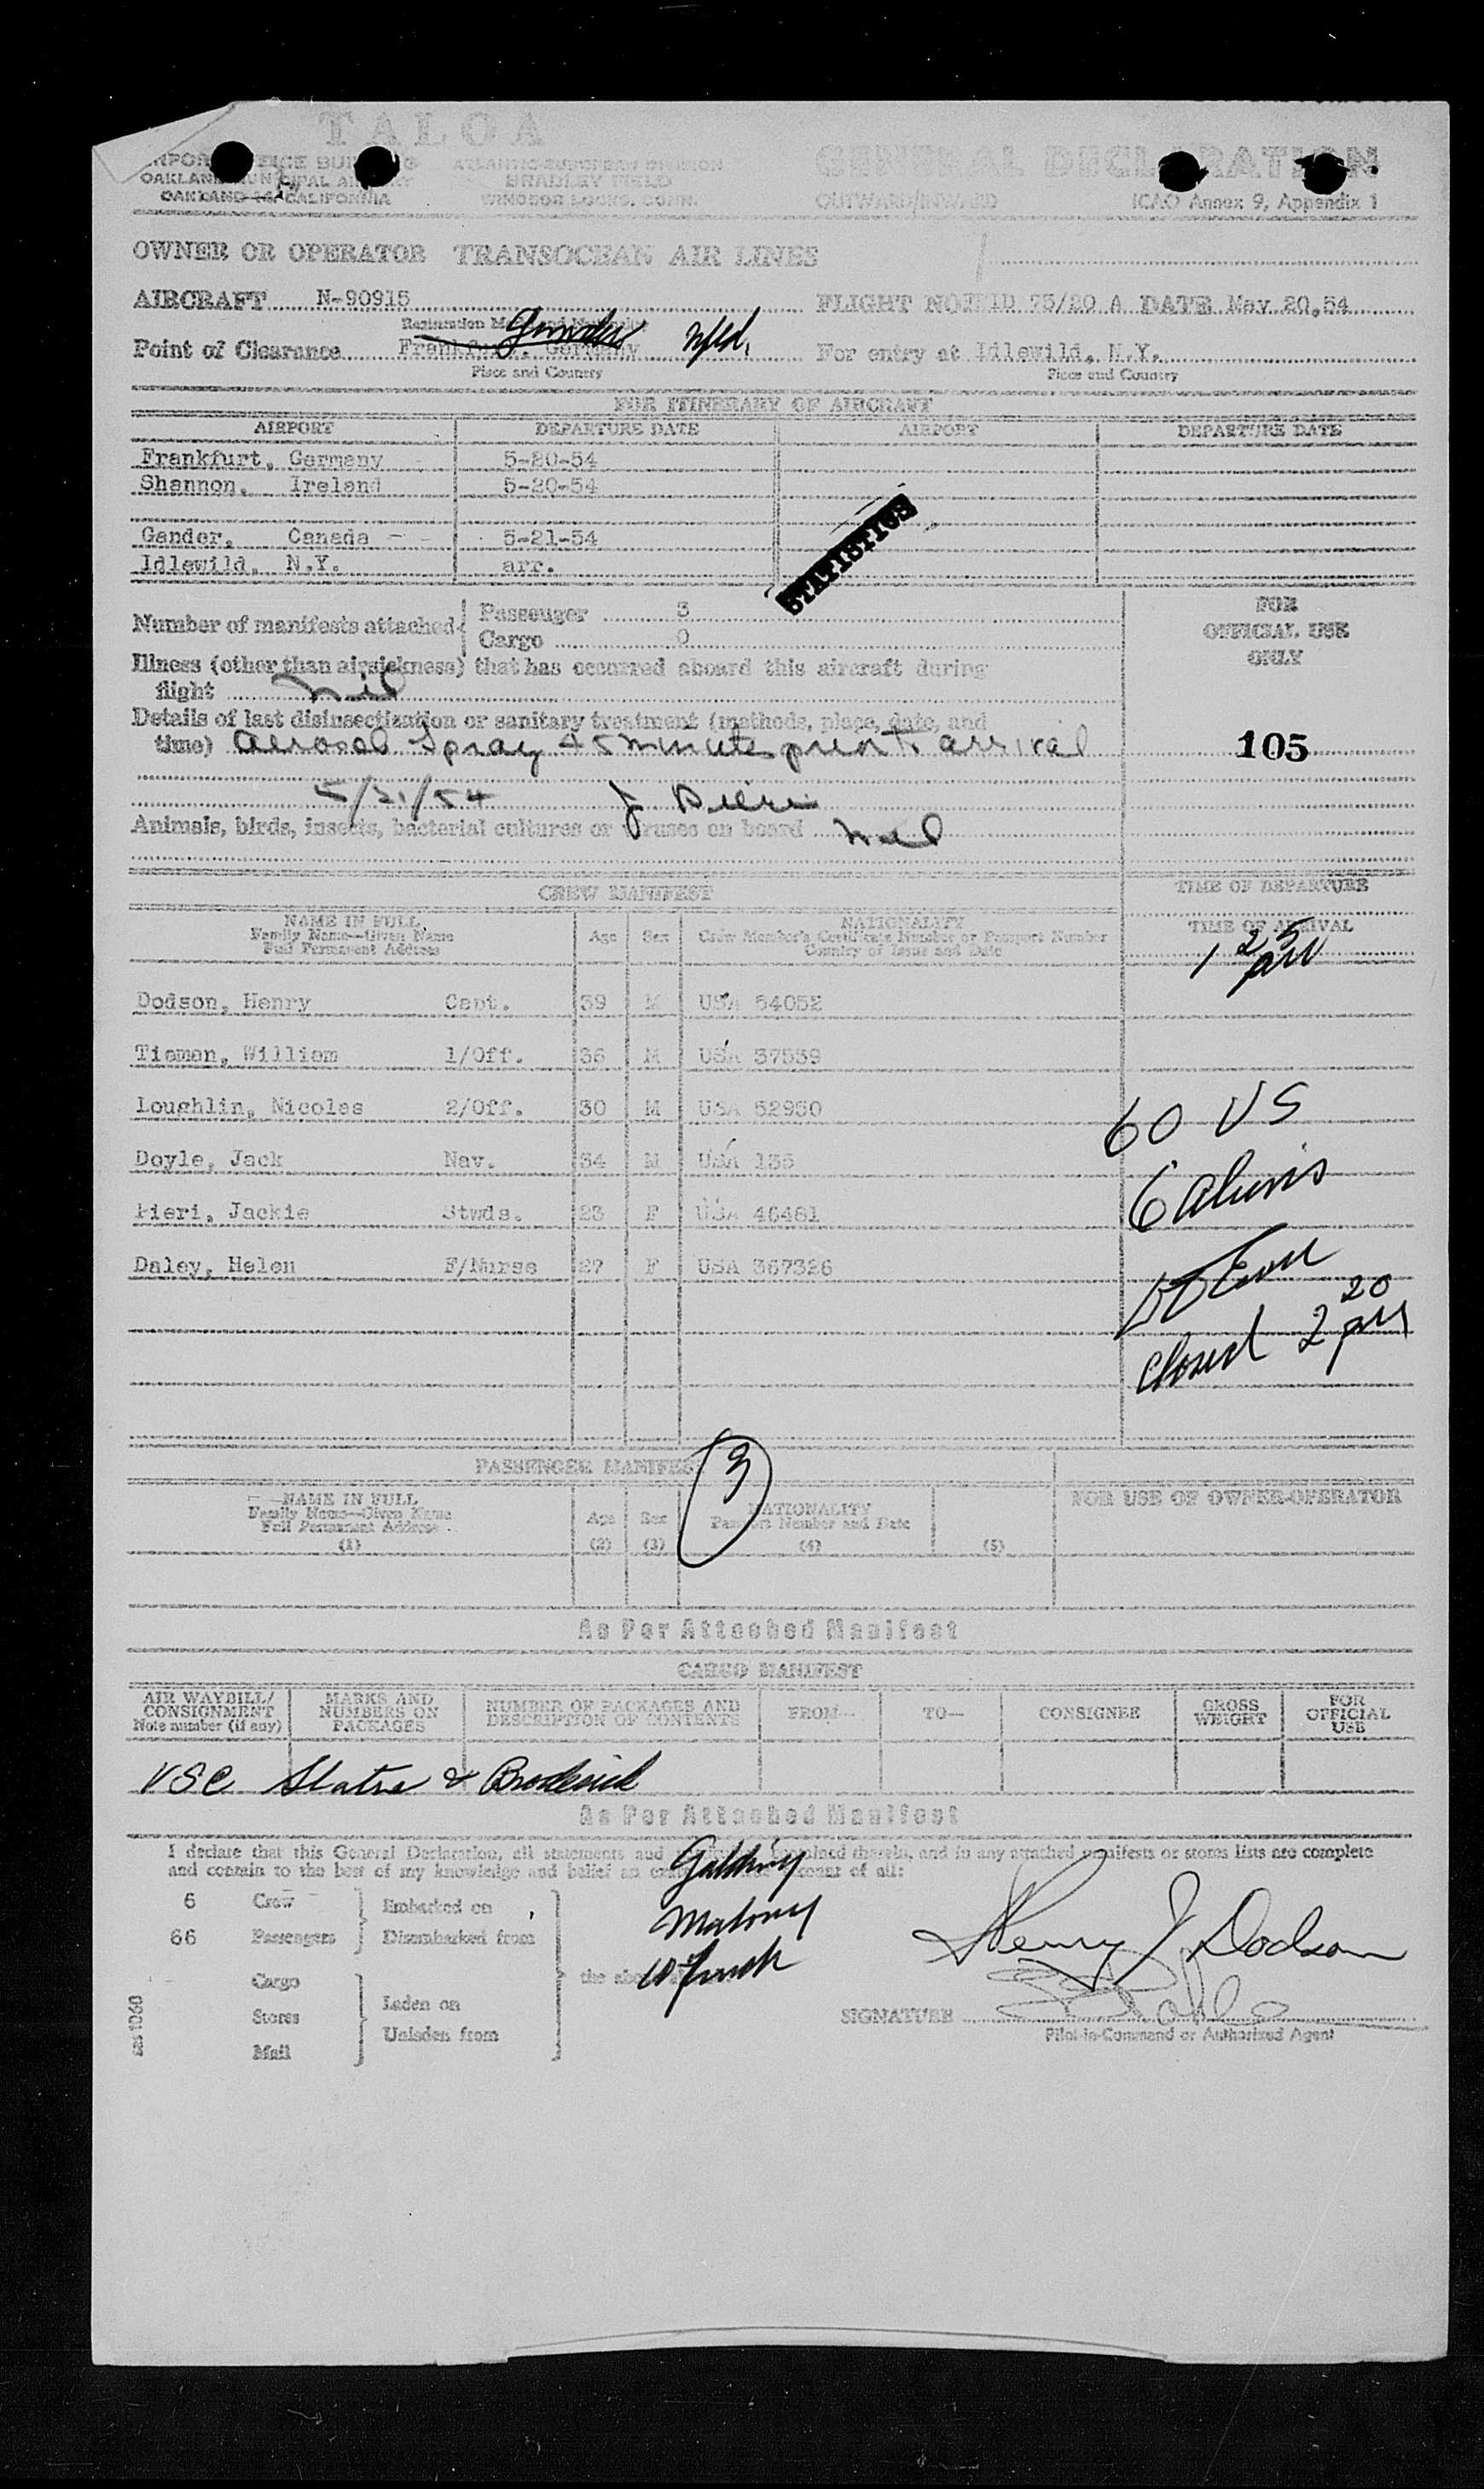 TALOA
GENERAL DECLARATION
OAKLAND MUNICIPAL AIRPORT
OAKLAND 14, CALIFORNIA
ATLANTIC-EUROPEAN DIVISION
BRADLEY FIELD
WINDSOR LOCKS, CONN.
OUTWARD/INWARD
ICAO Annex 9, Appendix 1
OWNER OR OPERATOR TRANSOCEAN AIR LINES
AIRCRAFT N-90915 FLIGHT NO. 75/20 A DATE May 20,54
Gander Nfld.
Point of Clearance Frankfurt, Germany For entry at Idlewild, N.Y.
Place and Country Place and Country
FOR ITINERARY OF AIRCRAFT
AIRPORT DEPARTURE DATE AIRPORT DEPARTURE DATE
Frankfurt, Germany 5-20-54
Shannon, Ireland 5-20-54
Gander, Canada 5-21-54
Idlewild, N.Y. arr.
STATISTICS
Number of manifests attached Passenger 3
Cargo 0
FOR
OFFICIAL USE
ONLY
Illness (other than airsickness) that has occurred aboard this aircraft during
flight nil
Details of last disinsectization or sanitary treatment (methods, place, date, and
time) Aerosol Spray 45 minutes prior to arrival
105
5/21/54 J Pieri
Animals, birds, insects, bacterial cultures or viruses on board nil
CREW MANIFEST
TIME OF DEPARTURE
NAME IN FULL
Family Name--Given Name
Full Permanent Address
Age Sex
NATIONALITY
Crew Member's Certificate Number or Passport Number
Country of Issue and Date
TIME OF ARRIVAL
1 25 pm
Dodson, Henry Capt. 39 M USA 54052
Tiemen, William 1/Off. 36 M USA 37539
Loughlin, Nicolas 2/Off. 30 M USA 52950
60 US
Doyle, Jack Nav. 34 M USA 135
6 aliens
Pieri, Jackie Stwds. 23 F USA 46461
Daley, Helen F/Nurse 27 F USA 367326
closed 2 20 pm
PASSENGER MANIFEST
3
NAME IN FULL
Family Name--Given Name
Full Permanent Address
(1)
Age
(2)
Sex
(3)
NATIONALITY
Passport Number and Date
(4)
(5)
FOR USE OF OWNER-OPERATOR
As Per Attached Manifest
CARGO MANIFEST
AIR WAYBILL/
CONSIGNMENT
Note number (if any)
MARKS AND
NUMBERS ON
PACKAGES
NUMBER OF PACKAGES AND
DESCRIPTION OF CONTENTS
FROM--
TO--
CONSIGNEE
GROSS
WEIGHT
FOR
OFFICIAL
USE
As Per Attached Manifest
I declare that this General Declaration, all statements and contained therein, and in any attached manifests or stores lists are complete
and contain to the best of my knowledge and belief an account of all:
6 Crew Embarked on
66 Passengers Disembarked from
Cargo
Stores
Mail
Laden on
Unladen from
Henry J Dodson
SIGNATURE
Pilot-in-Command or Authorized Agent